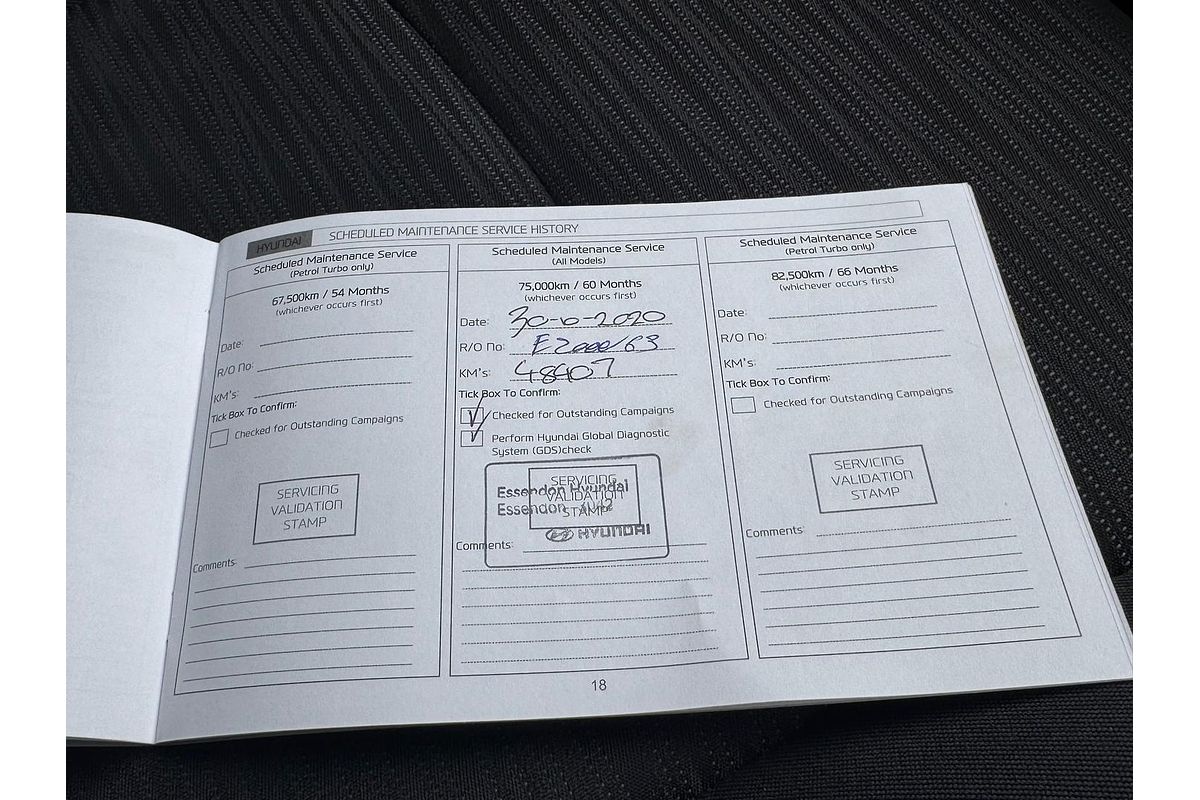 HYUNDAI
SCHEDULED MAINTENANCE SERVICE HISTORY
Scheduled Maintenance Service
(Petrol Turbo only)
67,500km / 54 Months
(whichever occurs first)
Date:
R/O No:
KM's:
Tick Box To Confirm:
Checked for Outstanding Campaigns
SERVICING
VALIDATION
STAMP
Comments:
Scheduled Maintenance Service
(All Models)
75,000km / 60 Months
(whichever occurs first)
Date: 30-6-2020
R/O No:
KM's: 48407
Tick Box To Confirm:
Checked for Outstanding Campaigns
Perform Hyundai Global Diagnostic
System (GDS)check
SERVICING
Essendon Hyundai
VALIDATION
Essendon
STAMP
HYUNDAI
Comments:
Scheduled Maintenance Service
(Petrol Turbo only)
82,500km / 66 Months
(whichever occurs first)
Date:
R/O No:
KM's:
Tick Box To Confirm:
Checked for Outstanding Campaigns
SERVICING
VALIDATION
STAMP
Comments:
18